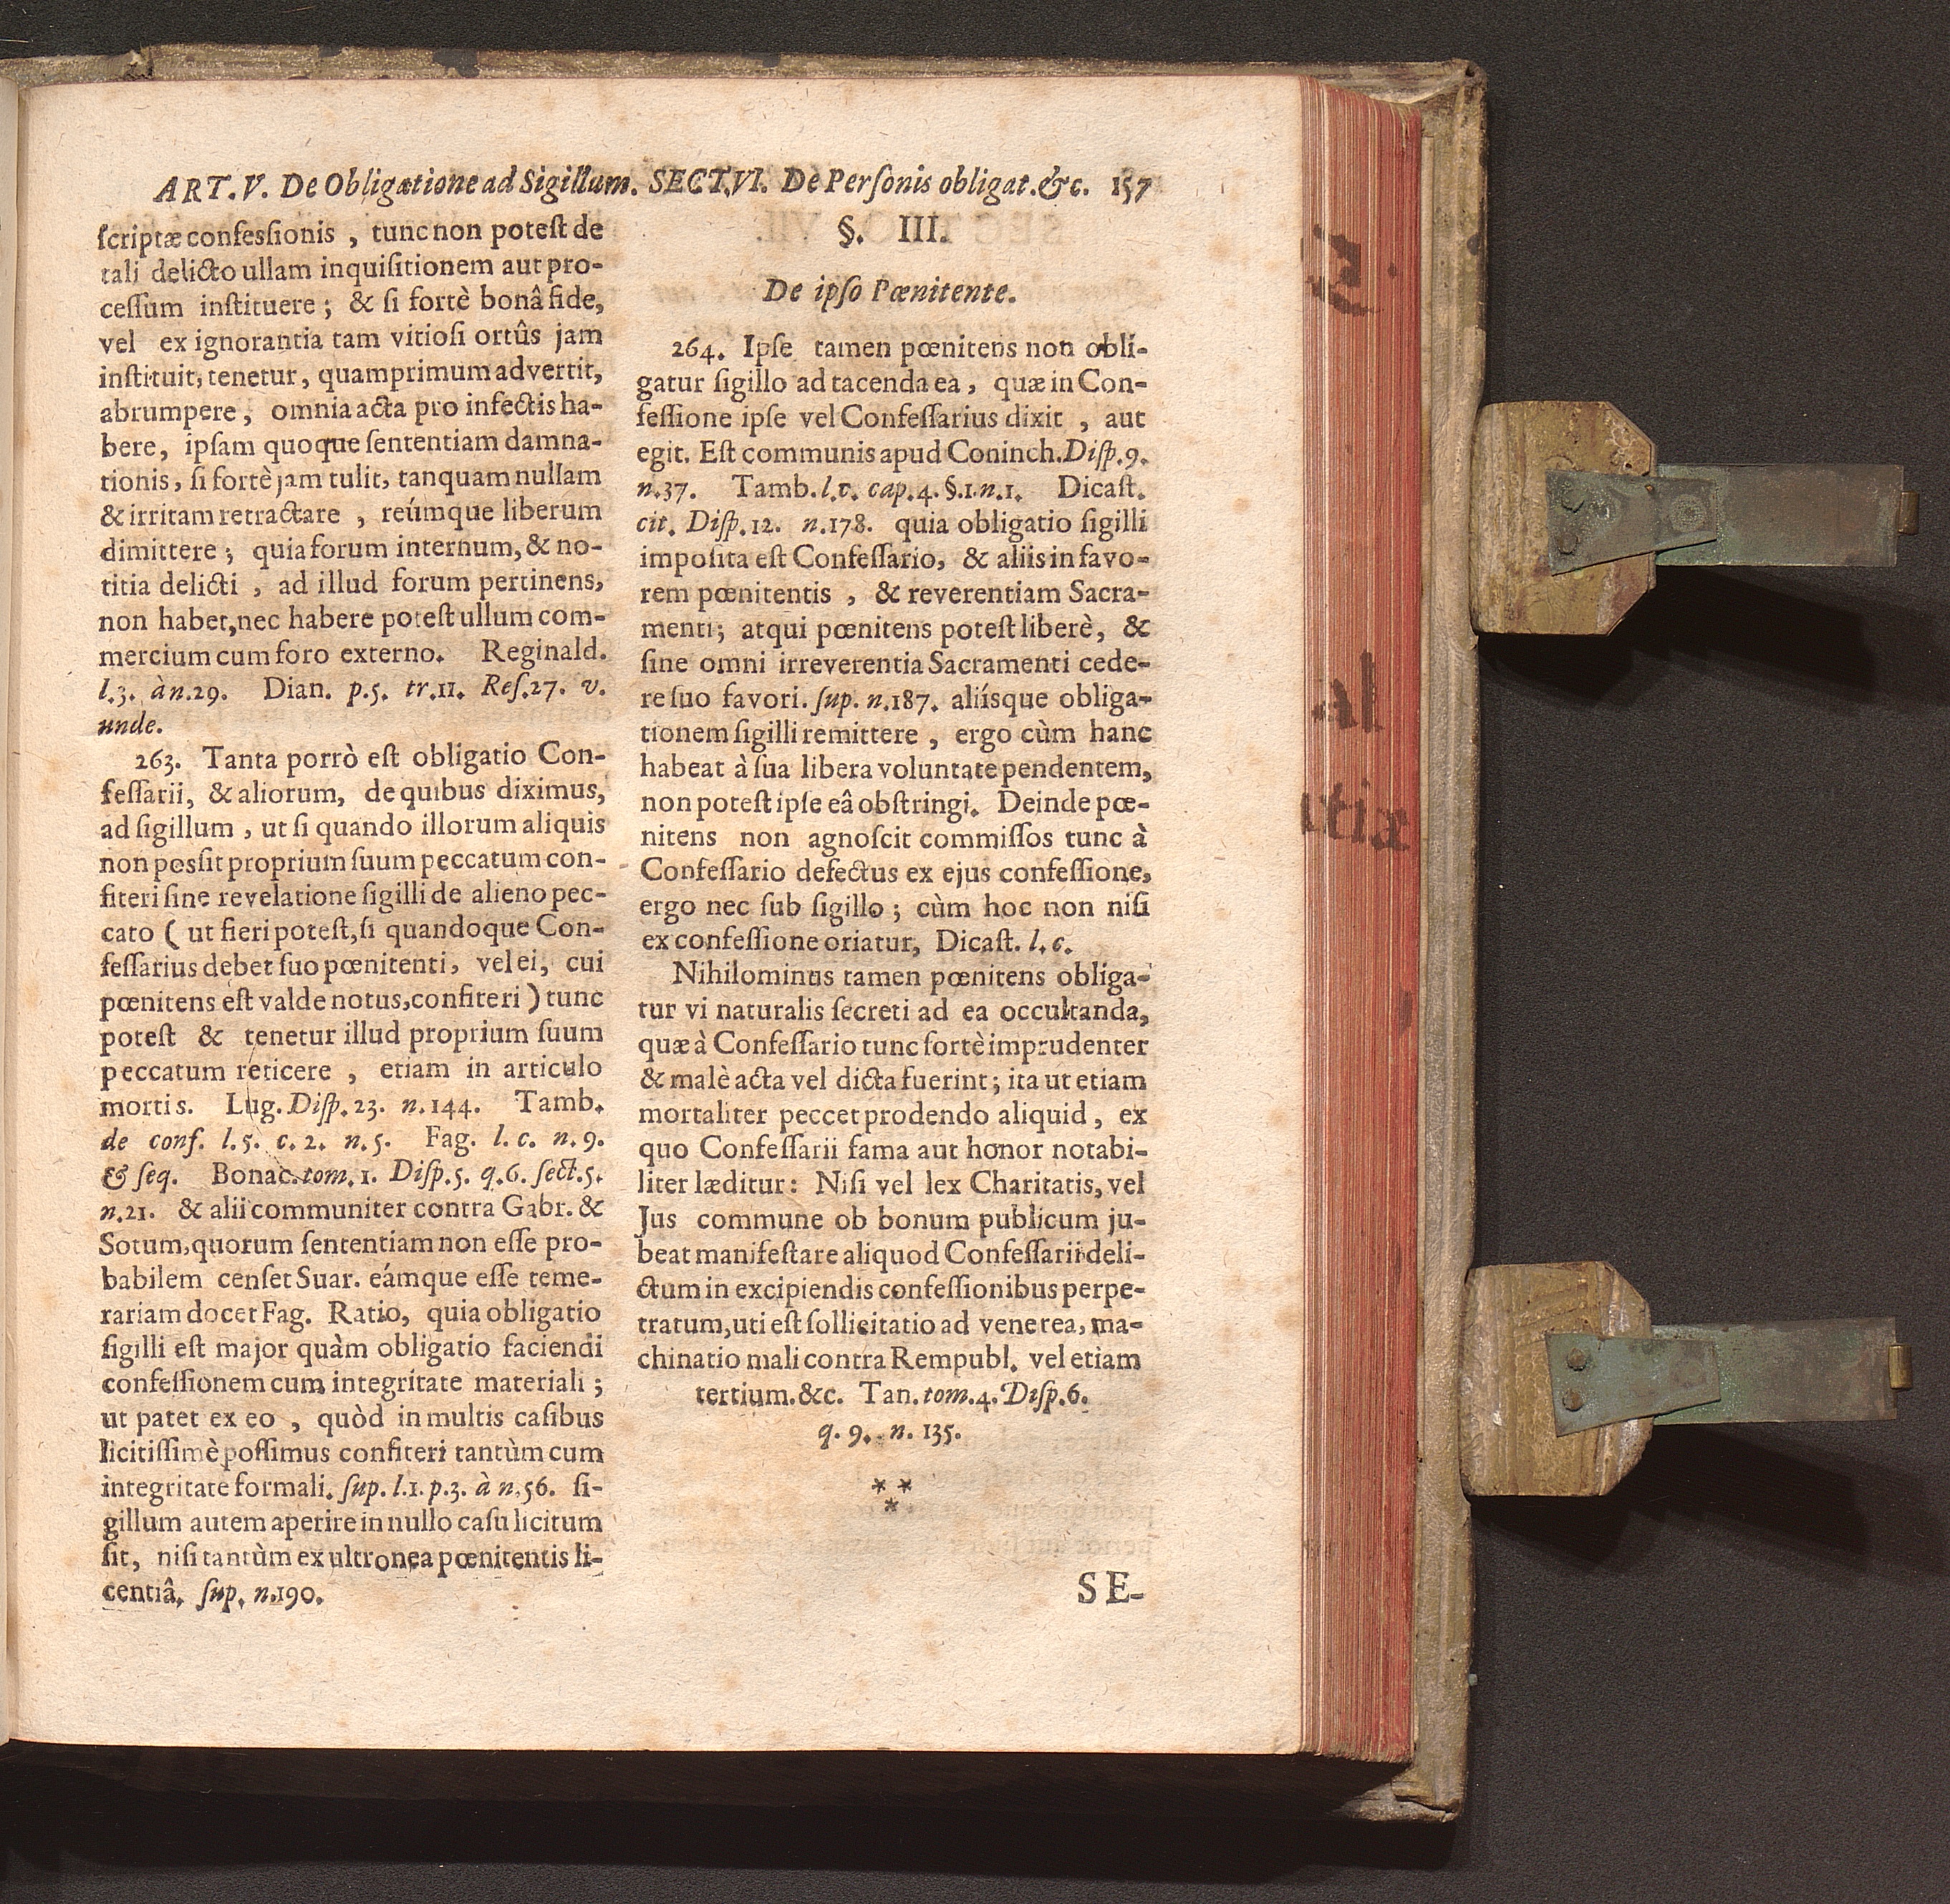 ART.V. De Obligatione ad Sigillum. SECT.VI. De Perſonis obligat.&c. 157
ſcriptæ confeſſionis , tunc non poteſt de
tali delicto ullam inquiſitionem aut pro-
ceſſum inſtituere ; & ſi fortè bonâ fide,
vel ex ignorantia tam vitioſi ortûs jam
inſtituit, tenetur, quamprimum advertit,
abrumpere, omnia acta pro infectis ha-
bere, ipſam quoque ſententiam damna-
tionis, ſi fortè jam tulit, tanquam nullam
& irritam retractare , reúmque liberum
dimittere ; quia forum internum, & no-
titia delicti , ad illud forum pertinens,
non habet, nec habere poteſt ullum com-
mercium cum foro externo. Reginald.
l.3. à n.29. Dian. p.5. tr.11. Reſ.27. v.
unde.
263. Tanta porrò eſt obligatio Con-
feſſarii, & aliorum, de quibus diximus,
ad ſigillum , ut ſi quando illorum aliquis
non poſſit proprium ſuum peccatum con-
fiteri ſine revelatione ſigilli de alieno pec-
cato ( ut fieri poteſt, ſi quandoque Con-
feſſarius debet ſuo pœnitenti, vel ei, cui
pœnitens eſt valde notus, confiteri ) tunc
poteſt & tenetur illud proprium ſuum
peccatum reticere , etiam in articulo
mortis. Lug. Diſp.23. n.144. Tamb.
de conf. l.5. c.2. n.5. Fag. l. c. n.9.
& ſeq. Bonac. tom.1. Diſp.5. q.6. ſect.5.
n.21. & alii communiter contra Gabr. &
Sotum, quorum ſententiam non eſſe pro-
babilem cenſet Suar. eámque eſſe teme-
rariam docet Fag. Ratio, quia obligatio
ſigilli eſt major quàm obligatio faciendi
confeſſionem cum integritate materiali ;
ut patet ex eo , quòd in multis caſibus
licitiſſimè poſſimus confiteri tantùm cum
integritate formali. ſup. l.1. p.3. à n.56. ſi-
gillum autem aperire in nullo caſu licitum
ſit, niſi tantùm ex ultronea pœnitentis li-
centiâ. ſup. n.190.
§. III.
De ipſo Pœnitente.
264. Ipſe tamen pœnitens non obli-
gatur ſigillo ad tacenda ea, quæ in Con-
feſſione ipſe vel Confeſſarius dixit , aut
egit. Eſt communis apud Coninch. Diſp.9.
n.37. Tamb. l.c. cap.4. §.1.n.1. Dicaſt.
cit. Diſp.12. n.178. quia obligatio ſigilli
impoſita eſt Confeſſario, & aliis in favo-
rem pœnitentis , & reverentiam Sacra-
menti; atqui pœnitens poteſt liberè, &
ſine omni irreverentia Sacramenti cede-
re ſuo favori. ſup. n.187. aliíſque obliga-
tionem ſigilli remittere , ergo cùm hanc
habeat à ſua libera voluntate pendentem,
non poteſt ipſe eâ obſtringi. Deinde pœ-
nitens non agnoſcit commiſſos tunc à
Confeſſario defectus ex ejus confeſſione,
ergo nec ſub ſigillo ; cùm hoc non niſi
ex confeſſione oriatur, Dicaſt. l.c.
Nihilominus tamen pœnitens obliga-
tur vi naturalis ſecreti ad ea occultanda,
quæ à Confeſſario tunc fortè imprudenter
& malè acta vel dicta fuerint ; ita ut etiam
mortaliter peccet prodendo aliquid, ex
quo Confeſſarii fama aut honor notabi-
liter læditur: Niſi vel lex Charitatis, vel
Jus commune ob bonum publicum ju-
beat manifeſtare aliquod Confeſſarii deli-
ctum in excipiendis confeſſionibus perpe-
tratum, uti eſt ſollicitatio ad venerea, ma-
chinatio mali contra Rempubl. vel etiam
tertium.&c. Tan. tom.4. Diſp.6.
q. 9. n. 135.
* *
*
SE-